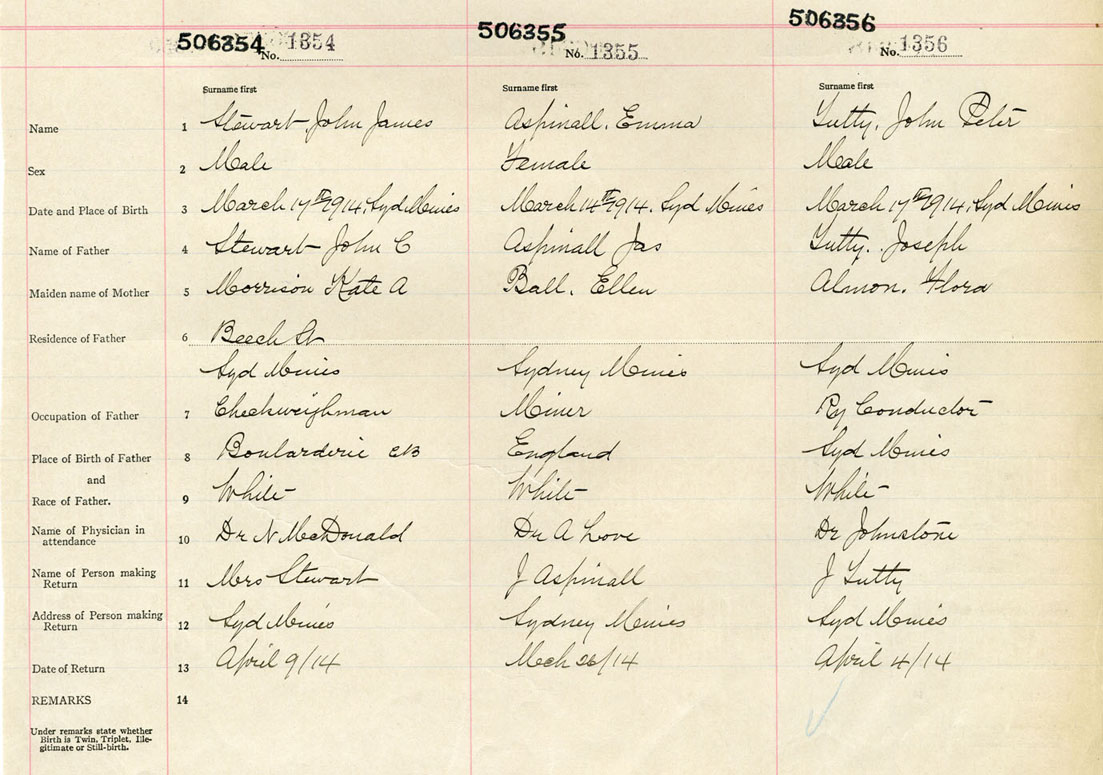 506354 No. 1354 506355 No. 1355 506356 No. 1356
Surname first Surname first Surname first
Name 1 Stewart, John James Aspinall, Emma Tutty, John Peter
Sex 2 Male Female Male
Date and Place of Birth 3 March 17th 1914, Syd Mines March 14th 1914. Syd Mines March 17th 1914, Syd Mines
Name of Father 4 Stewart John C Aspinall Jas Tutty, Joseph
Maiden name of Mother 5 Morrison Kate A Ball, Ellen Almon, Flora
Residence of Father 6 Beech St
Syd Mines Sydney Mines Syd Mines
Occupation of Father 7 Checkweighman Miner Ry Conductor
Place of Birth of Father 8 Boularderie CB England Syd Mines
and
Race of Father. 9 White White White
Name of Physician in
attendance 10 Dr N McDonald Dr A Love Dr Johnstone
Name of Person making
Return 11 Mrs Stewart J Aspinall J Tutty
Address of Person making
Return 12 Syd Mines Sydney Mines Syd Mines
Date of Return 13 April 9/14 Mch 26/14 April 4/14
REMARKS 14
Under remarks state whether
Birth is Twin, Triplet, Ille-
gitimate or Still-birth.